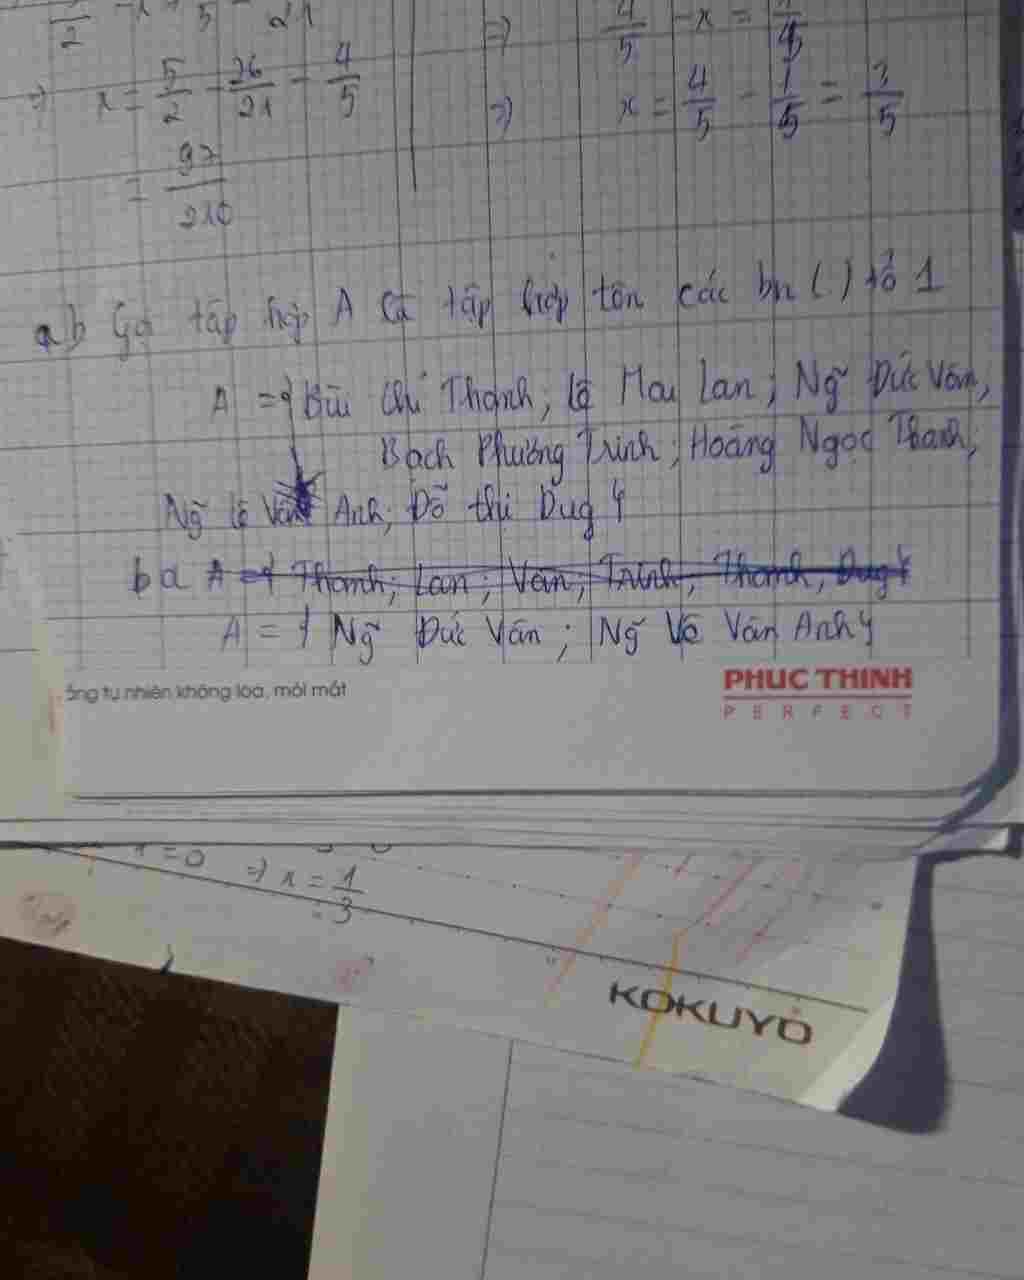 ⇒ x = 5/2 - 26/21 - 4/5
= 97/210
⇒ 4/5 - x =
⇒ x = 4/5 - 1/5 = 3/5
Gọi tập hợp A là tập hợp tên các bn ( ) tổ 1
A = { Bùi Chí Thanh; Lê Mai Lan; Ng̃ Đức Văn,
Bạch Phương Trinh; Hoàng Ngọc Thanh;
Ng̃ lê Vân Anh; Đỗ thị Dug }
b a A = { Thanh; Lan; Văn; Trinh, Thanh, Dug }
A = { Ng̃ Đức Văn; Ng̃ Vân Anh }
tự nhiên không lóa, mỏi mắt
PHUC THINH
PERFECT
= 0 ⇒ x = 1/3
KOKUYO